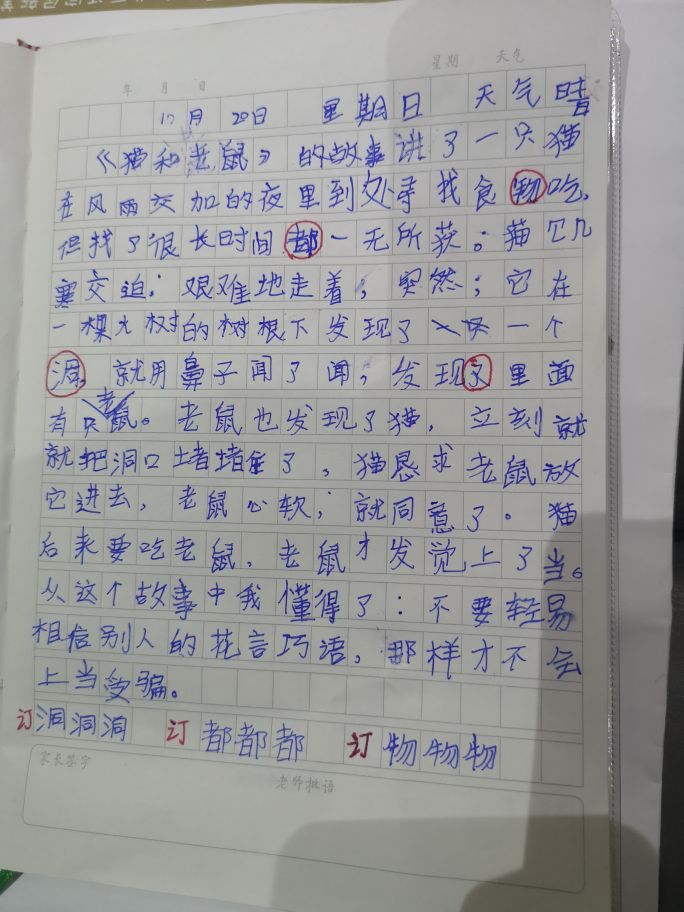 年 月 日 星期 天气
12月 20日 星期日 天气 晴
《猫和老鼠》的故事讲了一只猫
在风雨交加的夜里到处寻找食物吃,
但找了很长时间都一无所获。猫饥
寒交迫,艰难地走着,突然,它在
一棵大树的树根下发现了一个
洞,就用鼻子闻了闻,发现了里面
有只老鼠。老鼠也发现了猫,立刻就
就把洞口堵堵住了,猫恳求老鼠放
它进去,老鼠心软,就同意了。猫
后来要吃老鼠,老鼠才发觉上了当。
从这个故事中我懂得了:不要轻易
相信别人的花言巧语,那样才不会
上当受骗。
订洞洞洞 订都都都 订物物物
家长签字
老师批语